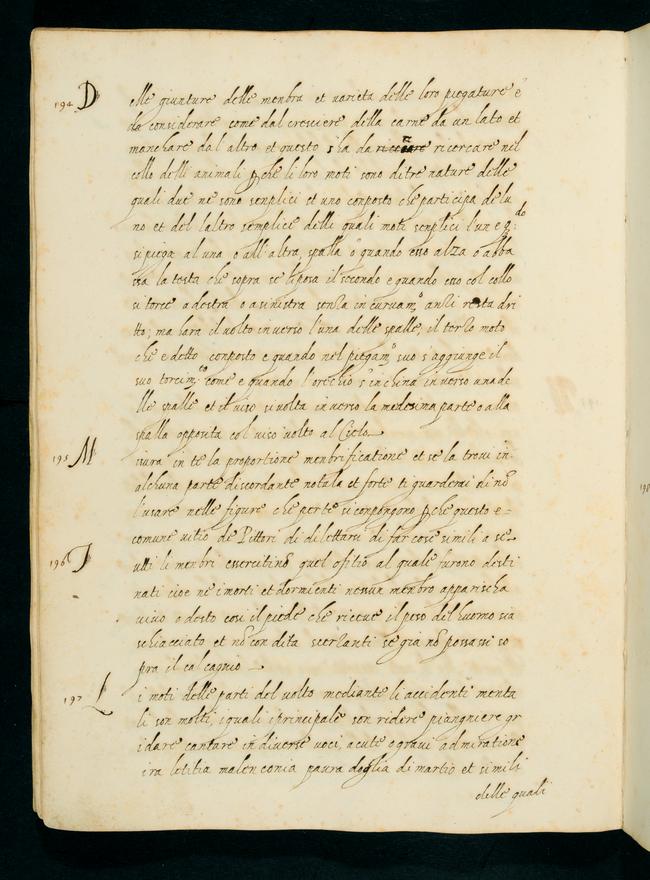 194 Delle giunture delle menbra et varieta delle loro piegature e
da considerare come dal cresciere della carne da un lato et
manchare dal altro et questo s ha da ricercare nel
collo delli animali p che li loro moti sono di tre nature delle
quali due ne sono senplici et uno conposto che participa de lu
no et del laltro semplice delli quali moti senplici l un e q:do
si piega al una o all altra spalla o quando esso alza o abba
ssa la testa che sopra se li posa il secondo e quando esso col collo
si torce a destra o a sinistra senza incurvam:o anzi resta dri
tto, ma hara il volto in verso l una delle spalle, il terzo moto
che e detto conposto e quando nel piegam:o suo s aggiunge il
suo torcim:to come e quando l orechio s inchina in verso una de
lle spalle et il viso si volta in verso la medesima parte o alla
spalla opposita col viso volto al Cielo
195 Misura in te la proportione menbrificatione et se la trovi in
alchuna parte discordante notala et forte ti guarderai di nō
l usare nelle figure che per te si conpongono p che questo e
comune vitio de Pittori di dilettarsi di far cose simili a se
196 Tutti li menbri essercitino quel ofitio al quale furono desti
nati cioe ne i morti et dormienti nessun menbro apparischa
vivo o desto cosi il piede che riceve il peso del huomo sia
schiacciato et nō con dita scerzanti se gia nō possassi so
pra il calcagnio
197 Li moti delle parti del volto mediante li accidenti menta
li son molti, i quali i principale son ridere piangniere gr
idare cantare in diverse voci, acute e gravi admiratione
ira letitia malenconia paura doglia di martio et simili
delle quali